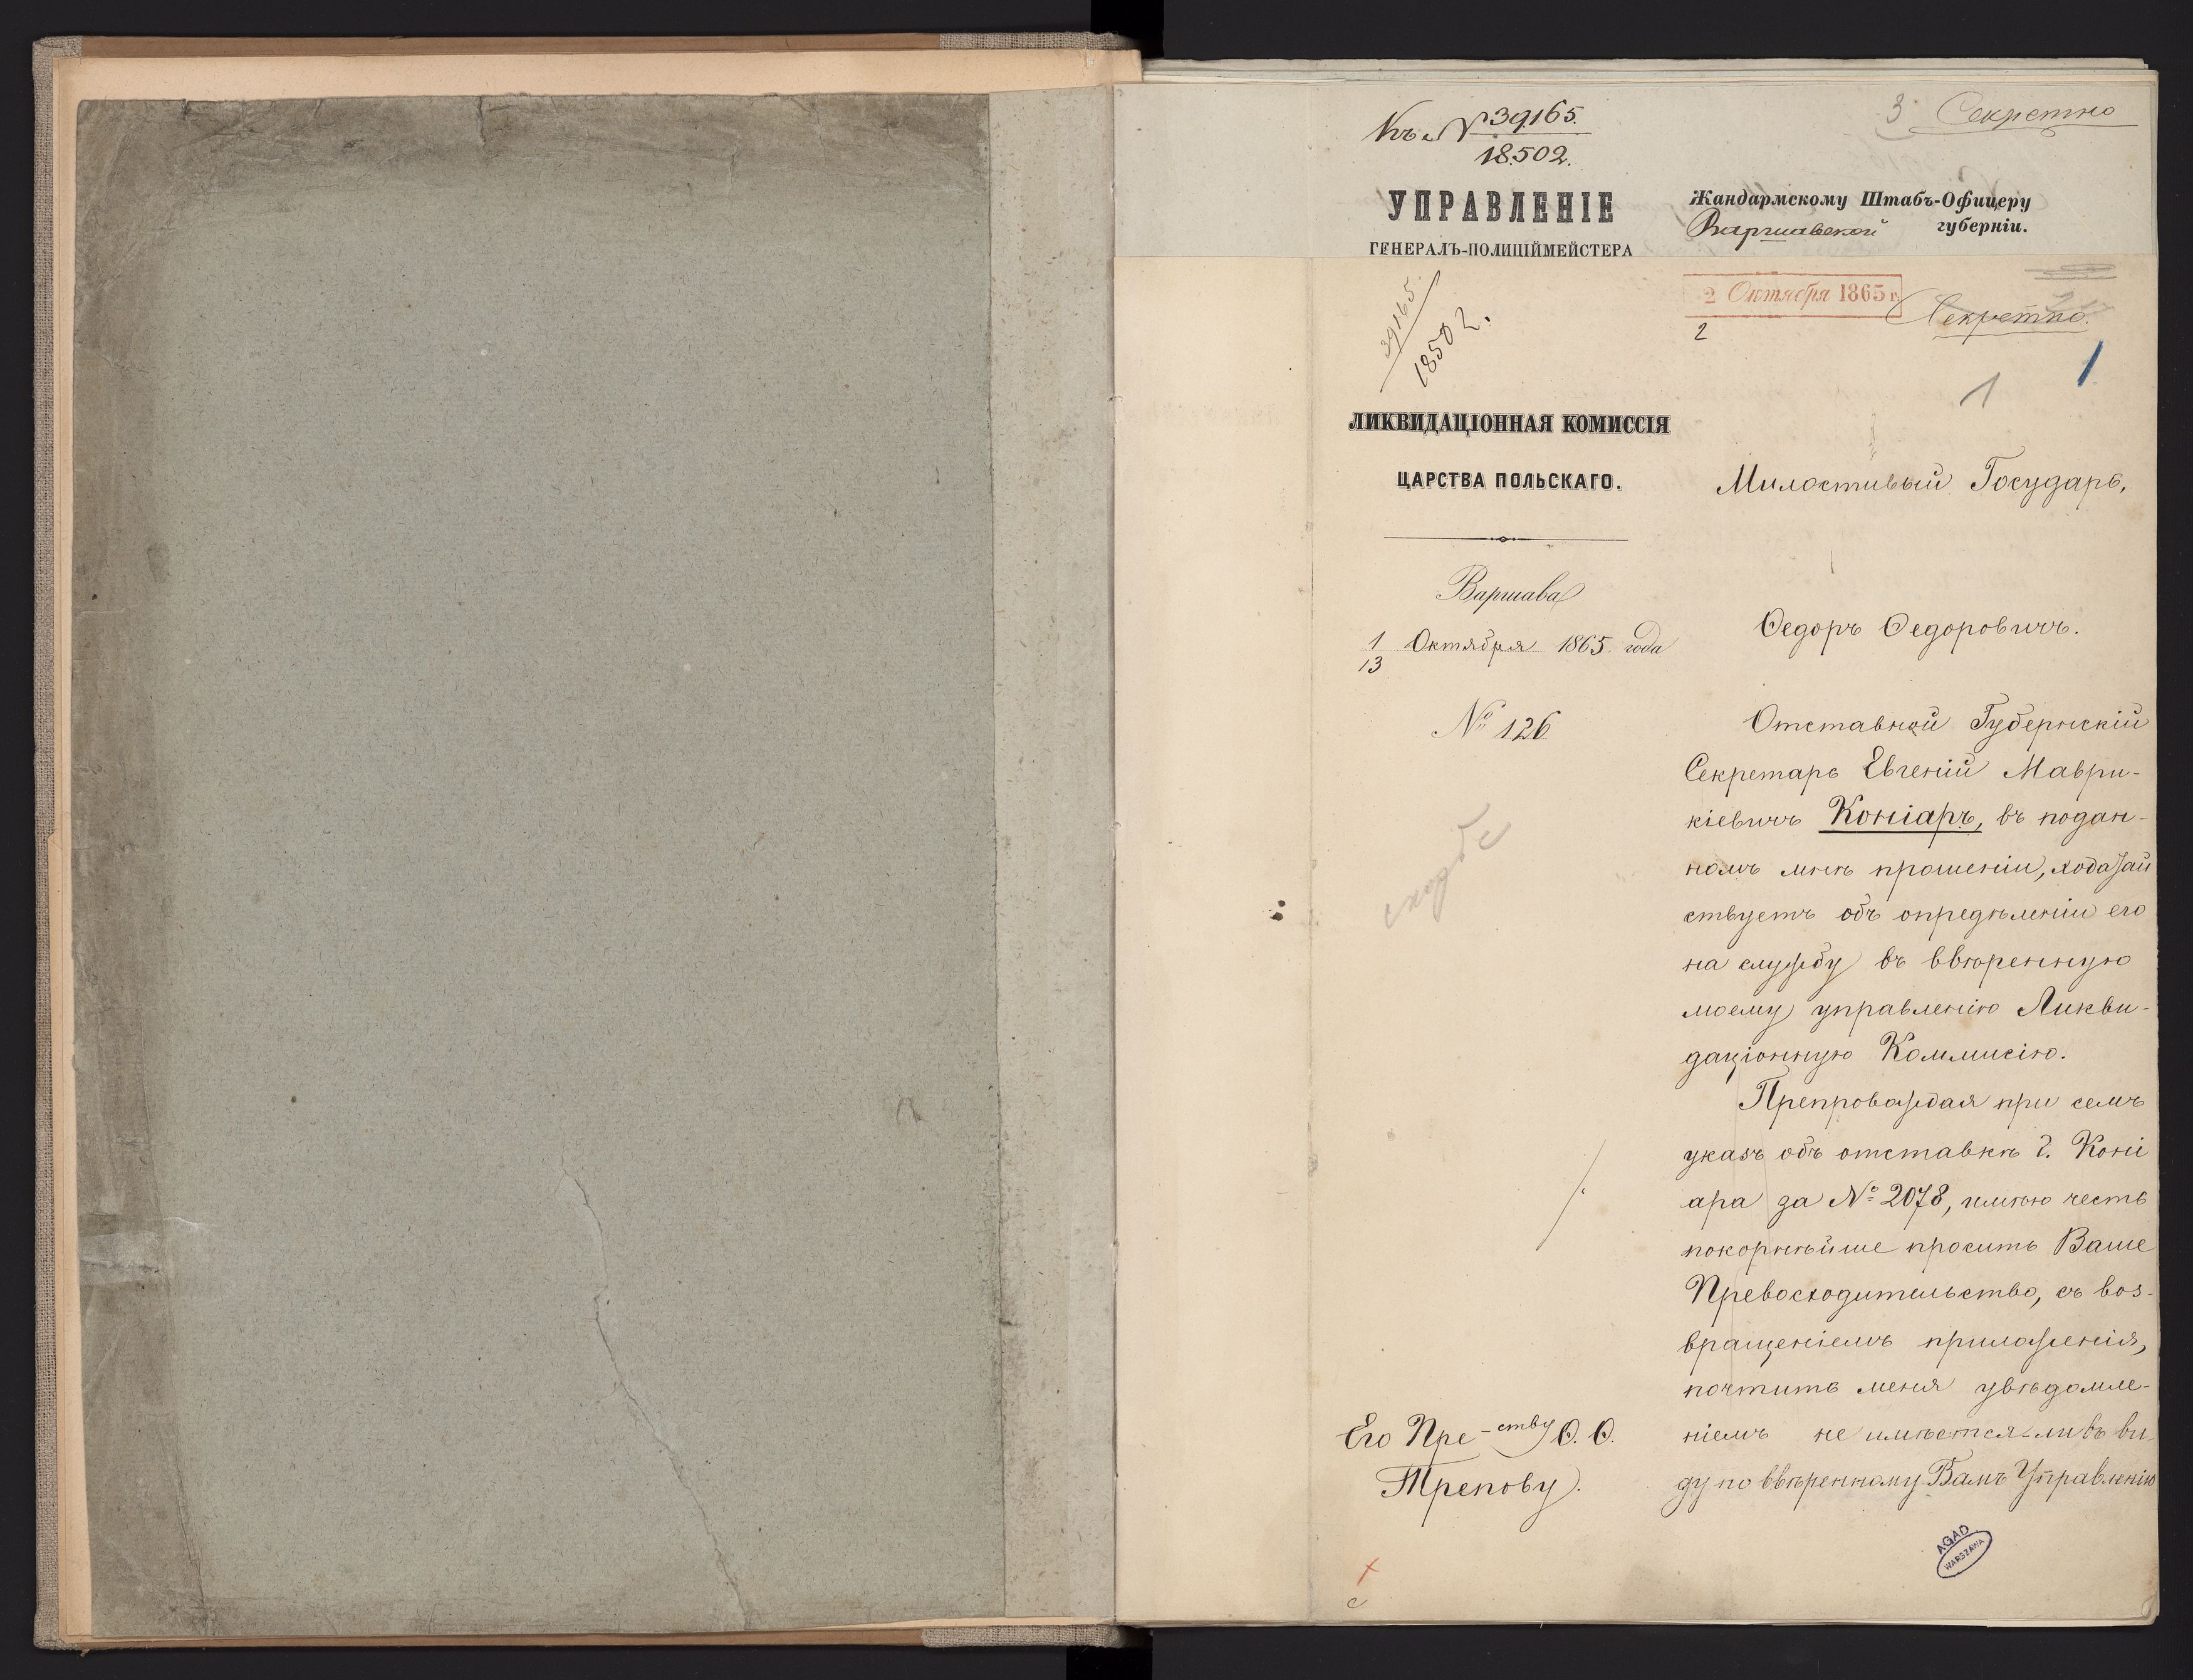 Къ № 39165.
18.502.
3 Секретно
УПРАВЛЕНІЕ
ГЕНЕРАЛЪ-ПОЛИЦІЙМЕЙСТЕРА
Жандармскому Штабъ-Офицеру
Варшавской губерніи.
39165
18502.
2 Октября 1865 г.
2
Секретно.
1
1
ЛИКВИДАЦІОННАЯ КОМИССІЯ
ЦАРСТВА ПОЛЬСКАГО.
Варшава
1 Октября 1865 года
13
№ 126
Милостивый Государь,
Ѳедоръ Ѳедоровичъ.
Отставной Губернскій
Секретарь Евгеній Маври-
кіевичъ Коніаръ, въ подан-
номъ мнѣ прошеніи, ходатай
ствуетъ объ опредѣленіи его
на службу въ ввѣренную
моему управленію Ликви-
даціонную Коммисію.
Препровождая при семъ
указъ объ отставкѣ г. Коні
ара за № 2078, имѣю честь
покорнѣйше просить Ваше
Превосходительство, съ воз-
вращеніемъ приложенія,
почтить меня увѣдомле-
ніемъ не имѣется-ли въ ви-
ду по ввѣренному Вамъ Управленію
Его Пре-ству Ѳ. Ѳ.
Трепову.
с
AGAD
WARSZAWA